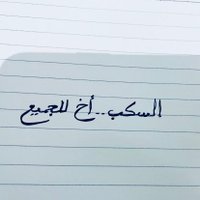 السكب..أخ للجميع